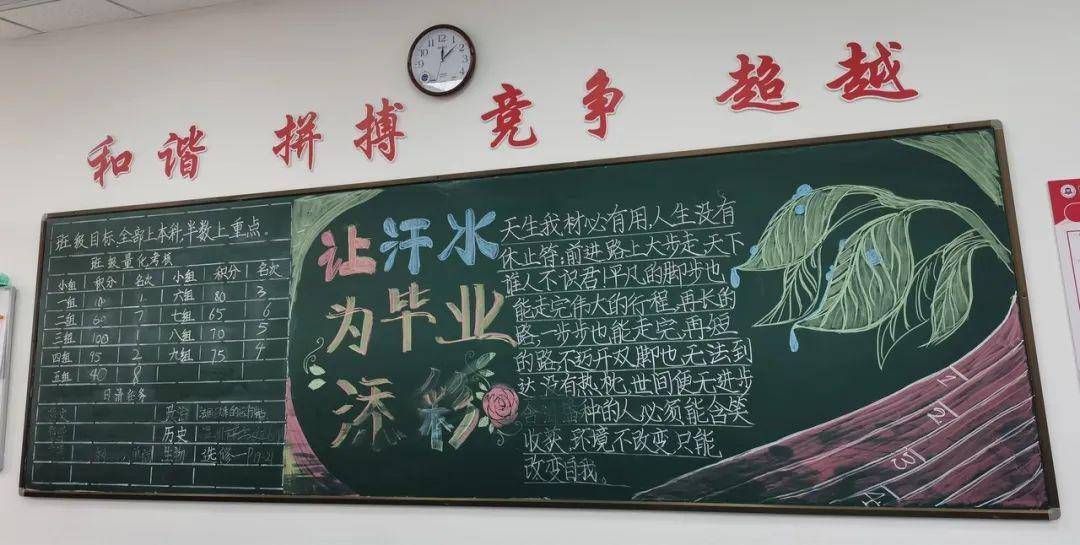 和谐 拼搏 竞争 超越
班级目标:全部上本科,半数上重点。
班级量化考核
小组 积分 名次 小组 积分 名次
一组 六组 80 3
二组 60 7 七组 65 6
三组 100 1 八组 70 5
四组 95 2 九组 75 4
五组 40 8
日清任务
政治
历史
生物 选修一
让汗水
为毕业
添彩
天生我材必有用,人生没有
休止符;前进路上大步走,天下
谁人不识君!平凡的脚步也
能走完伟大的行程,再长的
路,一步步也能走完,再短
的路不迈开双脚也无法到
达,没有热忱,世间便无进步
种的人必须能含笑
收获,环境不改变,只能
改变自我。
1
2
3
4